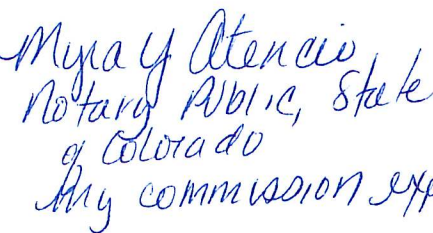 Myra Y Atencio
Notary Public, State
of Colorado
My commission exp